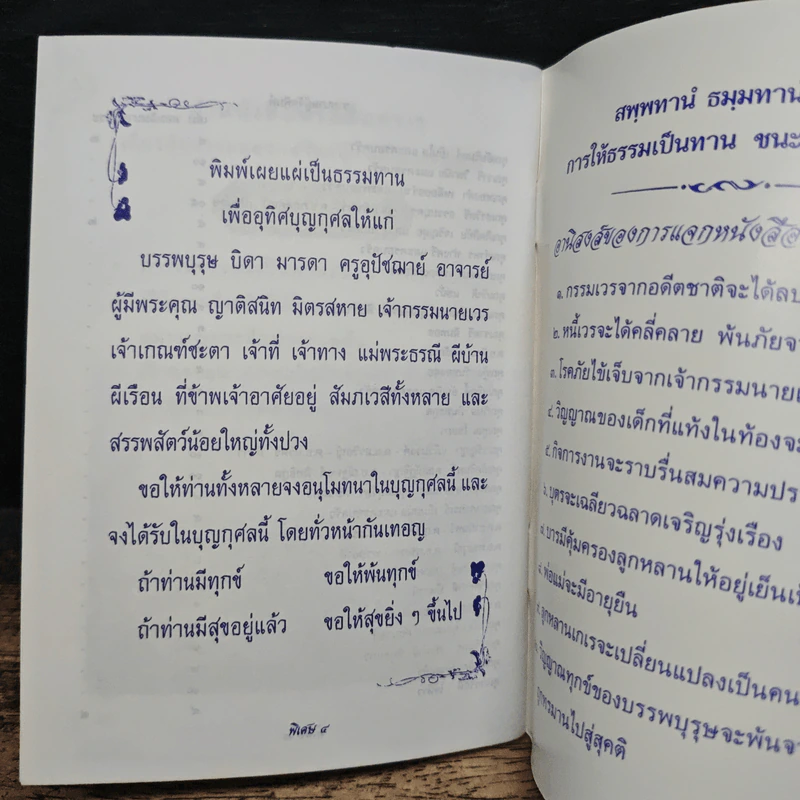 พิมพ์เผยแผ่เป็นธรรมทาน
เพื่ออุทิศบุญกุศลให้แก่
บรรพบุรุษ บิดา มารดา ครูอุปัชฌาย์ อาจารย์
ผู้มีพระคุณ ญาติสนิท มิตรสหาย เจ้ากรรมนายเวร
เจ้าเกณฑ์ชะตา เจ้าที่ เจ้าทาง แม่พระธรณี ผีบ้าน
ผีเรือน ที่ข้าพเจ้าอาศัยอยู่ สัมภเวสีทั้งหลาย และ
สรรพสัตว์น้อยใหญ่ทั้งปวง
ขอให้ท่านทั้งหลายจงอนุโมทนาในบุญกุศลนี้ และ
จงได้รับในบุญกุศลนี้ โดยทั่วหน้ากันเทอญ
ถ้าท่านมีทุกข์ ขอให้พ้นทุกข์
ถ้าท่านมีสุขอยู่แล้ว ขอให้สุขยิ่ง ๆ ขึ้นไป
พิเศษ ๔
สพฺพทานํ ธมฺมทาน
การให้ธรรมเป็นทาน ชนะ
อานิสงส์ของการแจกหนังสือ
๑. กรรมเวรจากอดีตชาติจะได้ลบ
๒. หนี้เวรจะได้คลี่คลาย พ้นภัยจา
๓. โรคภัยไข้เจ็บจากเจ้ากรรมนายเ
๔. วิญญาณของเด็กที่แท้งในท้องจะ
๕. กิจการงานจะราบรื่นสมความปร
๖. บุตรจะเฉลียวฉลาดเจริญรุ่งเรือง
๗. บารมีคุ้มครองลูกหลานให้อยู่เย็นเป็
๘. พ่อแม่จะมีอายุยืน
๙. ลูกหลานเกเรจะเปลี่ยนแปลงเป็นคน
วิญญาณทุกข์ของบรรพบุรุษจะพ้นจา
ทรมานไปสู่สุคติ